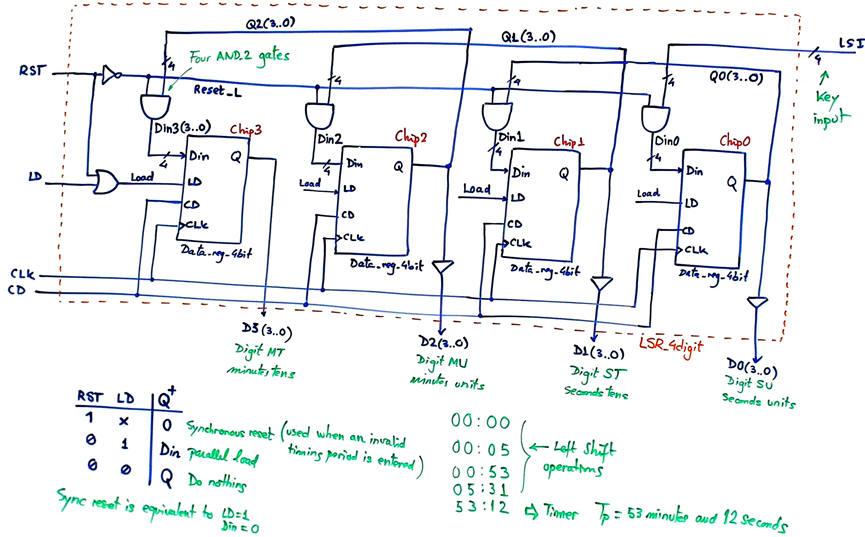 Q2(3..0)
Q1(3..0)
LSI
4
4
4
4
4
Q0(3..0)
Four AND_2 gates
RST
Reset_L
Key
input
Din3(3..0)
Din2
Din1
Din0
Chip3
Chip2
Chip1
Chip0
4
4
4
4
Din Q
Din Q
Din Q
Din Q
LD
Load
LD
Load
LD
Load
LD
Load
LD
CD
CD
CD
CD
CLK
CLK
CLK
CLK
Data_reg_4bit
Data_reg_4bit
Data_reg_4bit
Data_reg_4bit
CLK
CD
D3 (3..0)
Digit MT
minutes tens
D2(3..0)
Digit MU
minutes units
D1(3..0)
Digit ST
Seconds tens
LSR_4digit
D0(3..0)
Digit SU
Seconds units
RST LD Q+
1 x 0 Synchronous reset (used when an invalid
timing period is entered)
0 1 Din parallel load
0 0 Q Do nothing
Sync reset is equivalent to LD=1
Din=0
00:00
00:05
00:53
05:31
← Left Shift
operations
53:12 ⇒ Timer Tp = 53 minutes and 12 seconds